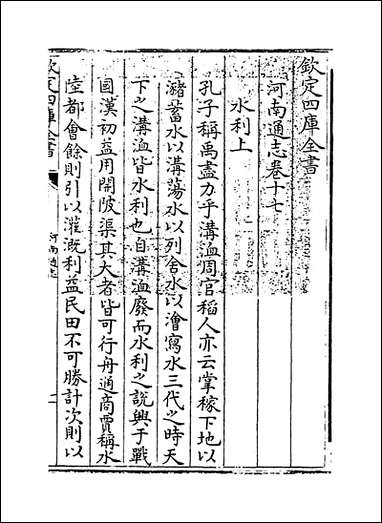 欽定四庫全書
河南通志卷十七
水利上
孔子稱禹盡力乎溝洫周官稻人亦云掌稼下地以
瀦蓄水以溝蕩水以列舍水以澮寫水三代之時天
下之溝洫皆水利也自溝洫廢而水利之說興于戰
國漢初益用開陂渠其大者皆可行舟通商賈稱水
陸都會餘則引以灌溉利益民田不可勝計次則以
欽定四庫全書
河南通志